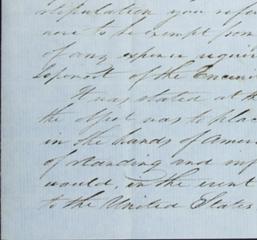 stipulation you refer
are to be exempt from
of any expense requir
deponent of the
It was stated at th
the object was to plac
in the hands of Ameri
of standing and inf
would, in the event
to the United States